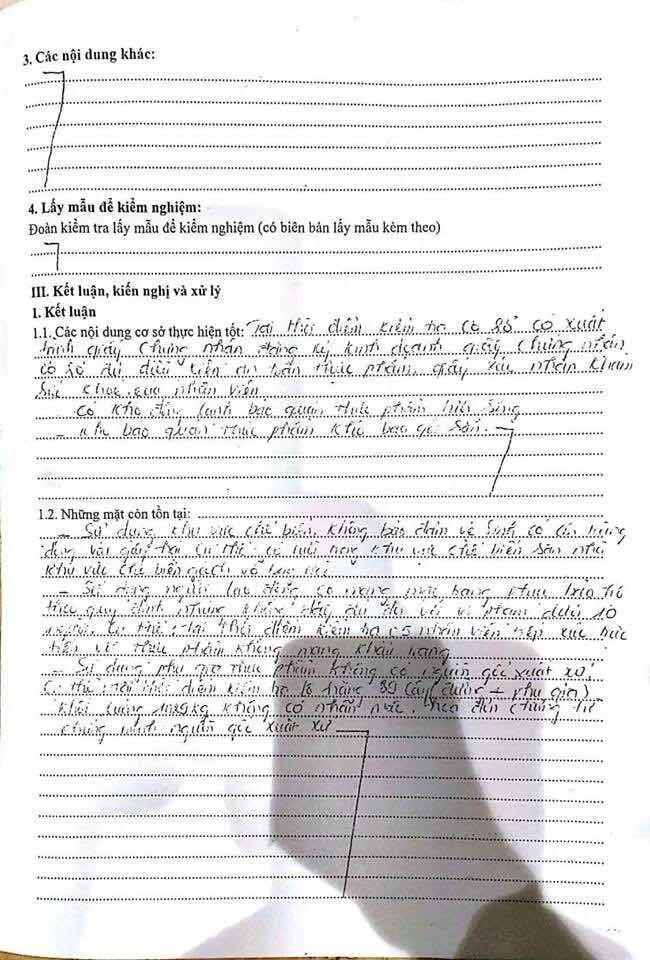 3. Các nội dung khác:
4. Lấy mẫu để kiểm nghiệm:
Đoàn kiểm tra lấy mẫu để kiểm nghiệm (có biên bản lấy mẫu kèm theo)
III. Kết luận, kiến nghị và xử lý
1. Kết luận
1.1. Các nội dung cơ sở thực hiện tốt: Tại thời điểm kiểm tra cơ sở có xuất
trình giấy chứng nhận đăng ký kinh doanh giấy chứng nhận
cơ sở đủ điều kiện an toàn thực phẩm, giấy xác nhận khám
sức khỏe của nhân viên
- có kho đông lạnh bảo quản thực phẩm tươi sống
- Khu bảo quản thực phẩm khô bao gói sẵn.
1.2. Những mặt còn tồn tại:
- Sử dụng khu vực chế biến không bảo đảm vệ sinh có côn trùng
động vật gây hại cụ thể: có ruồi trong khu vực chế biến sàn nhà
khu vực chế biến gạch vỡ
- Sử dụng người lao động có mang mặc trang phục bảo hộ
theo quy định nhưng không đầy đủ đối với vi phạm dưới 10
người. Cụ thể: tại thời điểm kiểm tra 05 nhân viên tiếp xúc trực
tiếp với thực phẩm không mang khẩu trang
- Sử dụng phụ gia thực phẩm không có nguồn gốc xuất xứ.
Cụ thể: tại thời điểm kiểm tra
khối lượng không có nhãn mác, hóa đơn chứng từ
chứng minh nguồn gốc xuất xứ